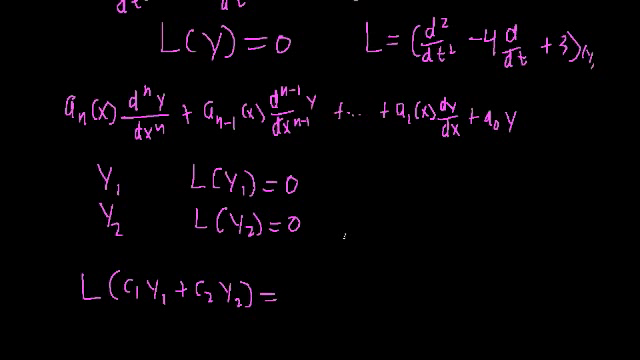 dt² dt
L(y) = 0 L = (d²/dt² - 4 d/dt + 3)(y)
aₙ(x) dⁿy/dxⁿ + aₙ₋₁(x) dⁿ⁻¹y/dxⁿ⁻¹ + ... + a₁(x) dy/dx + a₀ y
y₁ L(y₁) = 0
y₂ L(y₂) = 0
L(c₁y₁ + c₂y₂) =